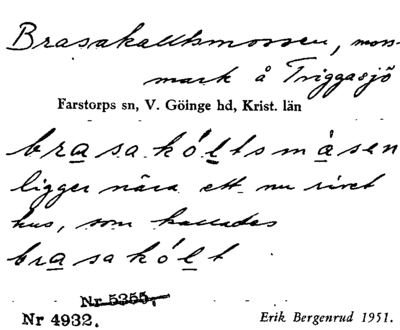 Brasakalltsmossen, moss-
mark å Triggasjö
Farstorps sn, V. Göinge hd, Krist. län
brasakóltsmåsen
ligger nära ett nu rivet
hus, som kallades
brasakólt
Nr 5355,
Nr 4932.
Erik Bergenrud 1951.